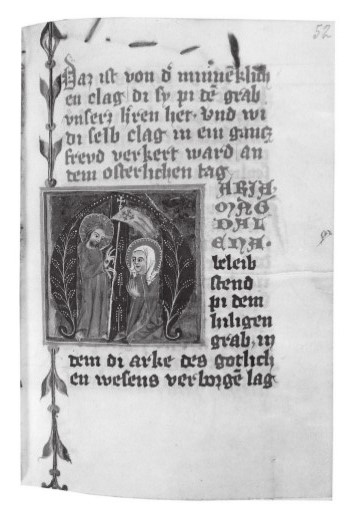 52
Daz ist von d̕ minneklich
en clag di sy pi dē grab
vnserz h̕ren het· vnd wi
di selb clag in ein gancz
frevd verkert ward an
dem osterlichen tag
ARIA·
MAG
DAL
ENA·
beleib
stend
pi dem
hiligen
grab, in
dem di arke des gotlich
en wesens verborgē lag